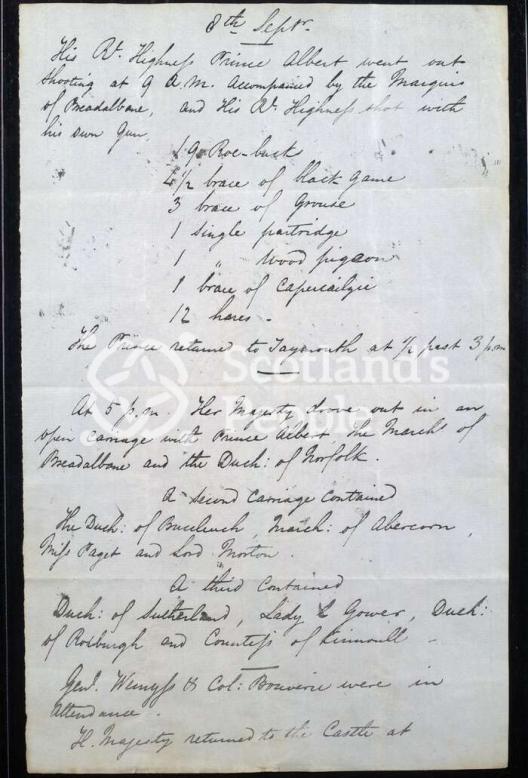 8th Septr.
His Rl. Highness Prince Albert went out
shooting at 9 A.M. accompanied by the Marquis
of Breadalbane, and His Rl. Highness shot with
his own Gun,
19 Roe-buck
4 1/2 brace of black game
3 brace of Grouse
1 single partridge
1 " Wood pigeon
1 brace of Capercailzie
12 hares -
The Prince returned to Taymouth at 1/2 past 3 p.m
Scotland's
People
At 5 p.m. Her Majesty drove out in an
open carriage with Prince Albert, the Marchs of
Breadalbane and the Duch: of Norfolk.
A second Carriage contained
The Duch: of Buccleuch, March: of Abercorn,
Miss Paget and Lord Morton.
A third contained
Duch: of Sutherland, Lady Gower, Duch:
of Roxburgh and Countess of Kinnoull -
Genl. Wemyss & Col: Bouverie were in
attendance.
H. Majesty returned to the Castle at